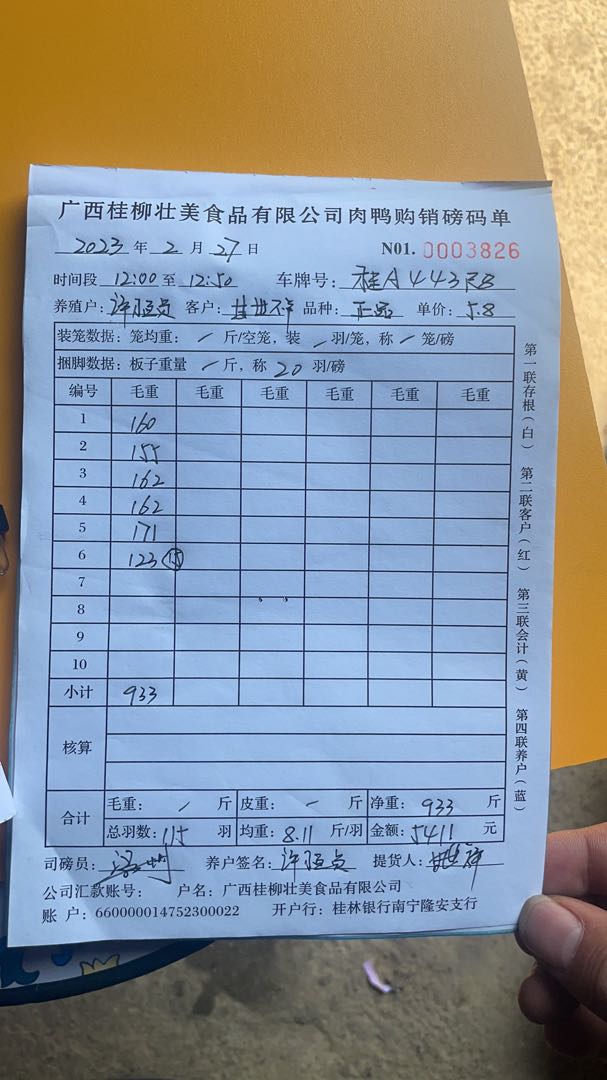 广西桂柳壮美食品有限公司肉鸭购销磅码单
2023 年 2 月 27 日 N01. 0003826
时间段 12:00 至 12:50 车牌号: 桂A443RB
养殖户: 许 客户: 甘世 品种: 正品 单价: 5.8
装笼数据: 笼均重: / 斤/空笼, 装 / 羽/笼, 称 / 笼/磅
捆脚数据: 板子重量 / 斤, 称 20 羽/磅
编号 毛重 毛重 毛重 毛重 毛重 毛重
1 160
2 155
3 162
4 162
5 171
6 123 15
7
8
9
10
小计 933
核算
合计 毛重: / 斤 皮重: - 斤 净重: 933 斤
总羽数: 115 羽 均重: 8.11 斤/羽 金额: 5411 元
司磅员: 养户签名: 许 提货人: 甘世
公司汇款账号: 户名: 广西桂柳壮美食品有限公司
账 户: 660000014752300022 开户行: 桂林银行南宁隆安支行
第一联存根(白) 第二联客户(红) 第三联会计(黄) 第四联养户(蓝)